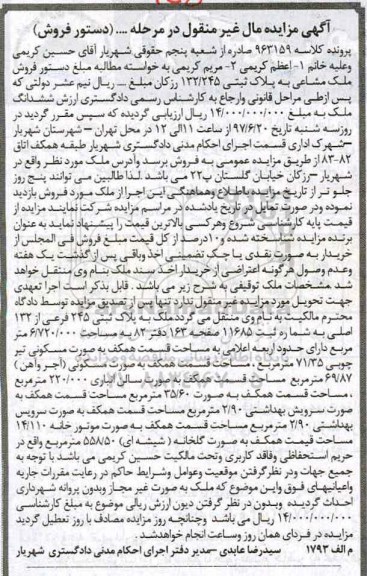 آگهی مزایده مال غیر منقول در مرحله .... (دستور فروش)
پرونده کلاسه ۹۶۳۱۵۹ صادره از شعبه پنجم حقوقی شهریار آقای حسین کریمی
وعلیه خانم ۱- اعظم کریمی ۲- مریم کریمی به خواسته مطالبه مبلغ دستور فروش
ملک مشاعی به پلاک ثبتی ۱۳۲/۲۴۵ رزکان مبلغ .... ریال نیم عشر دولتی که
پس ازطی مراحل قانونی وارجاع به کارشناس رسمی دادگستری ارزش ششدانگ
ملک به مبلغ ۱۴/۰۰۰/۰۰۰/۰۰۰ ریال ارزیابی گردیده که سپس مقرر گردید در
روزسه شنبه تاریخ ۹۷/۶/۲۰ از ساعت ۱۱الی ۱۲ در محل تهران – شهرستان شهریار
–شهرک اداری قسمت اجرای احکام مدنی دادگستری شهریار طبقه همکف اتاق
۸۲-۸۳ از طریق مزایده عمومی به فروش برسد وآدرس ملک مورد نظر واقع در
شهریار –رزکان خیابان گلستان پ۲۲ می باشد لذا طالبین می توانند پنج روز
جلو تر از تاریخ مزایده بااطلاع وهماهنگی این اجرا از ملک مورد فروش بازدید
نموده ودر صورت تمایل در تاریخ یادشده در مراسم مزایده شرکت نمایند مزایده از
قیمت پایه کارشناسی شروع وهرکسی بالاترین قیمت را پیشنهاد نماید به عنوان
برنده مزایده شناخته شده و ۱۰درصد از کل قیمت مبلغ فروش فی المجلس از
خریدار به صورت نقدی یا چک تضمینی اخذ وباقی پس از گذشت یک هفته
وعدم وصول هرگونه اعتراضی از خریدار اخذ سند ملک بنام وی منتقل خواهد
شد مشخصات ملک توقیفی به شرح زیر می باشد . قابل ذکر است اجرا تعهدی
جهت تحویل مورد مزایده غیر منقول ندارد تنها پس از تصدیق مزایده توسط دادگاه
محترم مالکیت به نام وی منتقل می گردد ملک به پلاک ثبتی ۲۴۵ فرعی از ۱۳۲
اصلی به شماره ثبت ۱۱۶۸۵ صفحه ۱۶۳ دفتر ۸۳ به مساحت ۶/۷۲۰/۰۰۰ متر
مربع دارای حدود اربعه اعلامی به مساحت قسمت همکف به صورت مسکونی تیر
چوبی ۷۱/۳۵ مترمربع . مساحت قسمت همکف به صورت مسکونی (آجر وآهن )
۶۹/۸۷ مترمربع مساحت قسمت همکف به صورت سالن انباری ۲۲۰/۰۰۰ مترمربع
. مساحت قسمت همکف به صورت ۳۵/۶۰ مترمربع مساحت قسمت همکف به
صورت سرویش بهداشتی ۲/۹۰ مترمربع مساحت قسمت همکف به صورت سرویس
بهداشتی ۲/۹۰ مترمربع مساحت قسمت همکف به صورت موتور خانه ۱۴/۱۱۰
مساحت قیمت همکف به صورت گلخانه ( شیشه ای) ۵۵۸/۵۰ مترمربع واقع در
حریم استحفاظی وفاقد کاربری وتحت مالکیت حسین کریمی می باشد با توجه به
جمیع جهات ودر نظر گرفتن موقعیت وعوامل وشرایط حاکم در رعایت مقررات جاریه
واعیانیهای فوق واین موضوع که ملک به صورت غیر مجاز وبدون پروانه شهرداری
احداث گردیده وبدون در نظر گرفتن دیون ارزش ریالی موضوع به مبلغ کارشناسی
۱۴/۰۰۰/۰۰۰/۰۰۰ ریال می باشد وچنانچه روز مزایده مصادف با روز تعطیل گردید
مزایده در فردای همان روز وساعت انجام خواهدشد .
م الف ۱۷۹۳ سیدرضا عابدی –مدیر دفتر اجرای احکام مدنی دادگستری شهریار